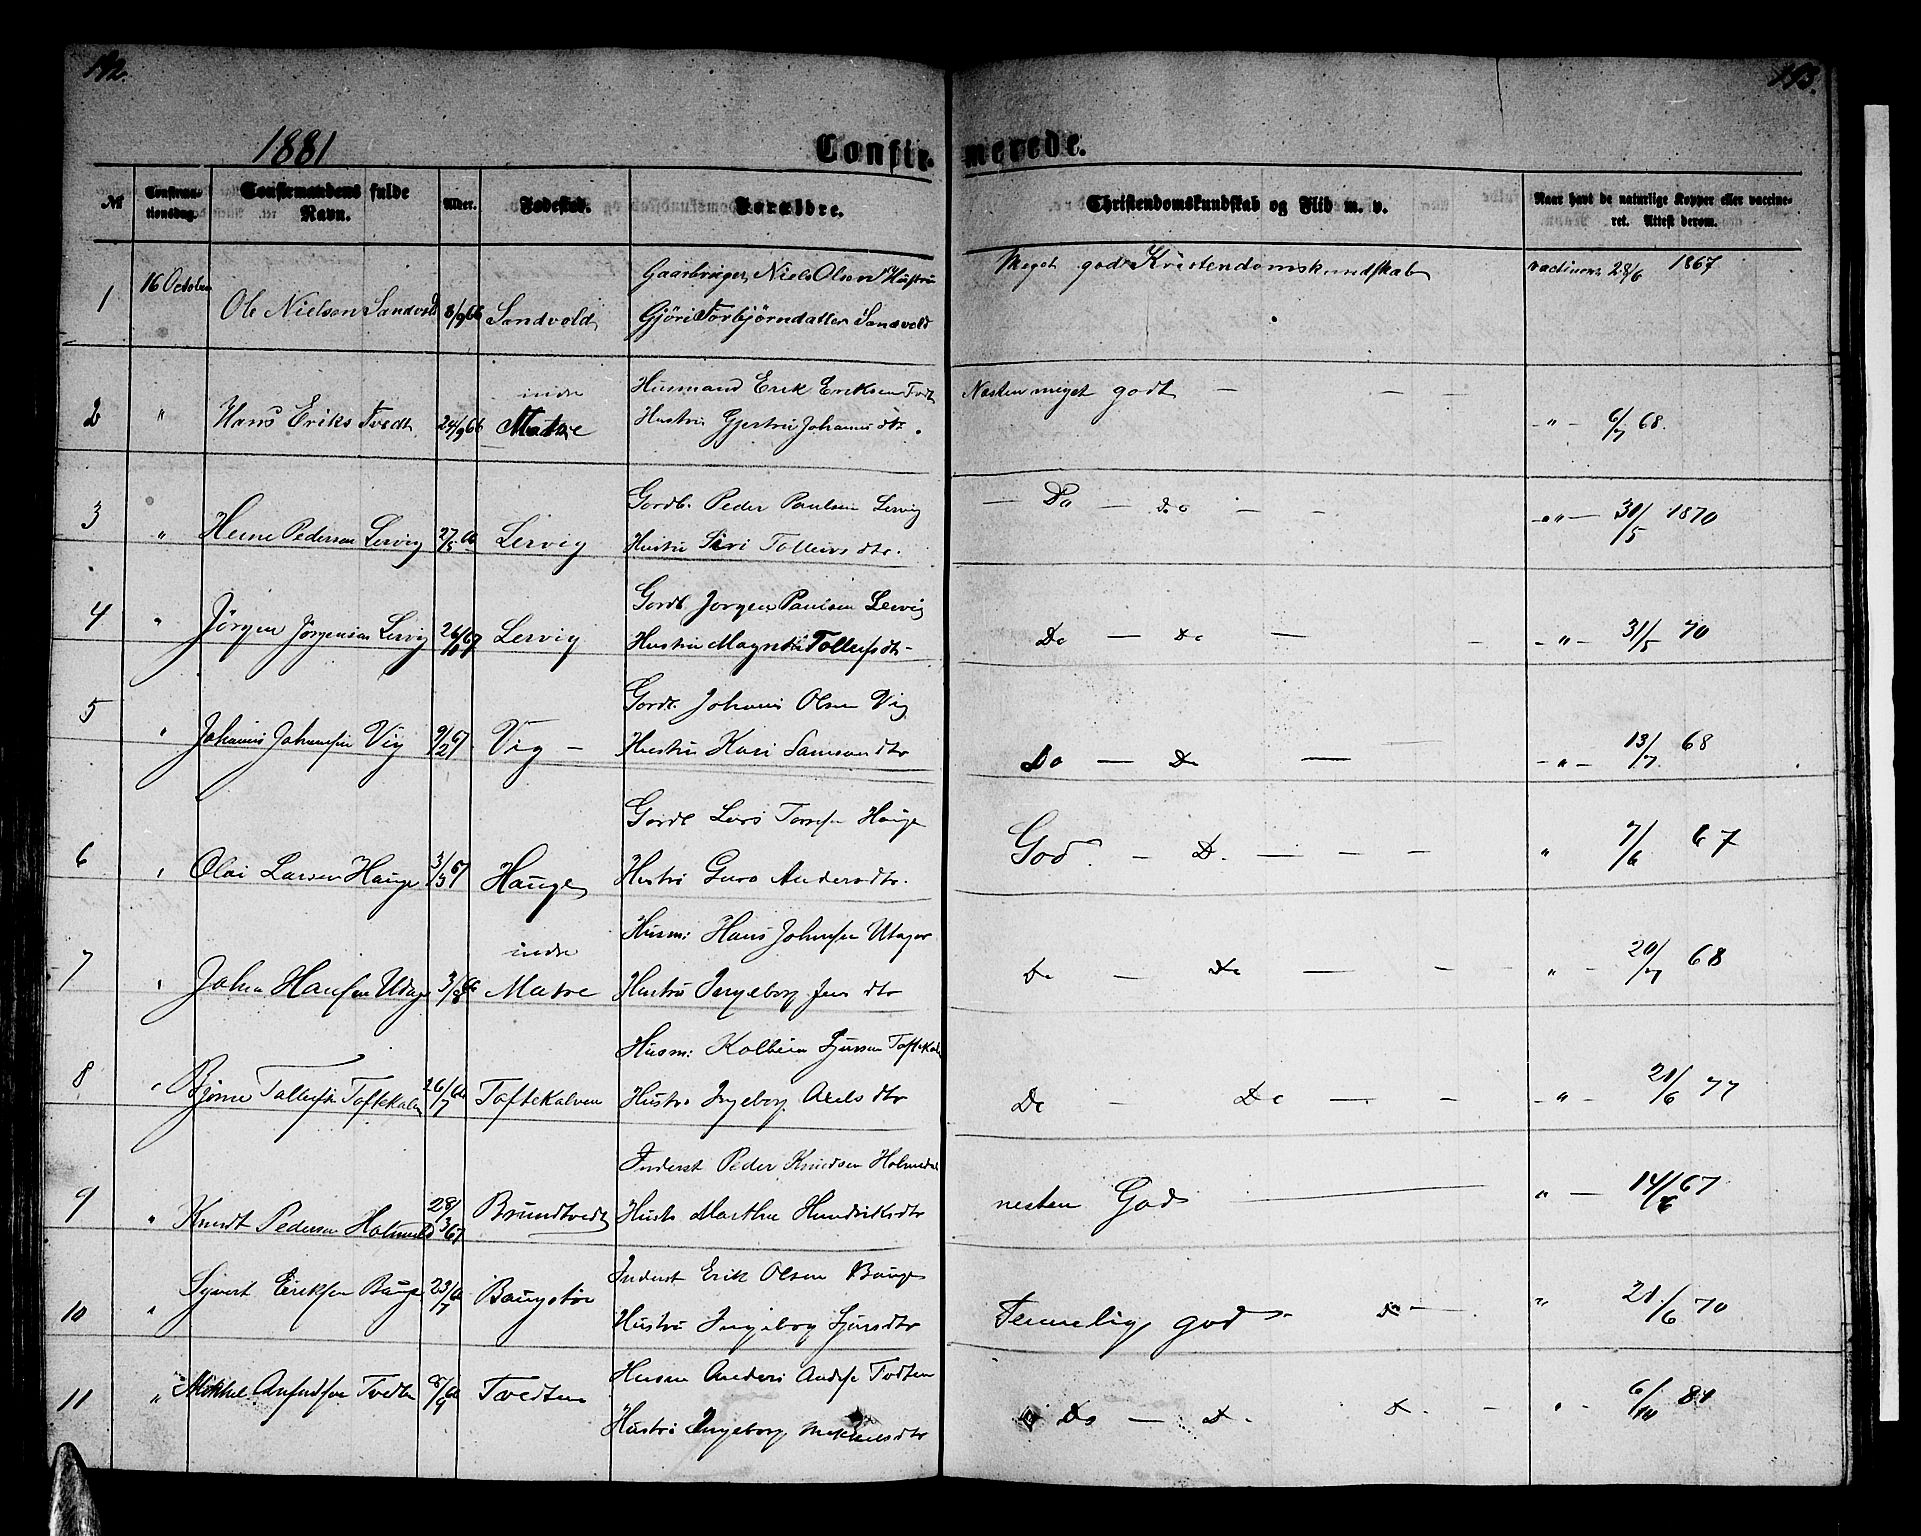 192.
193.
1881
Confir-
merede.
No
Confirma-
tionsdag.
Confirmandens fulde
Navn.
Alder.
Fødested.
Forældre.
Christendomskundskab og Flid m. v.
Naar havt de naturlige Kopper eller vaccine-
ret. Attest derom.
1
16 October
Ole Nielsen Sandvold
8/9 66
Sandvold
Gaardbruger Niels Olsen Hustru
Gjøri Torbjörndatter Sandvold
Meget god Kristendomskundskab
vaccineret 28/6 1867
2
"
Hans Eriks Tvedt
24/9 66
indre
Matre
Husmand Erik Eriksen Tvedt
Hustru Gjertru Johannisdtr.
Nesten meget godt — — —
— " — 6/7 68.
3
"
Heine Pedersen Lervig
27/5
Lervig
Gordb. Peder Paulsen Lervig
Hustru Siri Tolleivsdtr.
— Do — do — —
— " — 30/5 1870
4
"
Jörgen Jörgensen Lervig
26/ 67
Lervig
Gordb Jorgen Paulsen Lervig
Hustru Magnhi Tollefsdtr —
Do — Do — —
— " — 31/5 70
5
"
Johannis Johannsen Vig
9/2 67
Vig —
Gordb. Johannis Olsen Vig
Hustru Kari Samsondtr
Do — Do —
— " — 13/7 68
6
"
Olai Larsen Hauge
3/5 67
Hauge
Gordb Lars Hauge
Hustru Guro Andersdtr.
God. — D. — — —
" 7/6 67
7
"
Johan Hansen Utager
3/8
indre
Matre
Husm: Hans Johansen Utager
Hustru Ingeborg Jens dtr
Do — Do — — —
" — 20/7 68
8
"
Bjørne Tollefsen Toftekalven
26/7
Toftekalven
Husm: Kolbein Sjursen Toftekalv
Hustru Ingeborg Axels dtr
Do — Do — —
— " — 21/6 77
9
"
Knudt Pedersen Holmedal
28/3 67
Brundtvedt
Inderst Peder Knudsen Holmedal
Hustr Martha Hendriksdtr
nesten God —
" — 14/6 67
10
"
Syvert Eriksen Bauge
23/7
Baugstøe
Inderst Erik Olsen Bauge
Hustru Ingeborg Sjursdtr
Temmelig god do —
" 21/6 70
11
"
Mikkel Tvedten
8/9
Tvedten
Husm Anders Tvedten
Hustru Ingeborg Mikkelsdtr
Do — D. D. —
" — 6/10 81